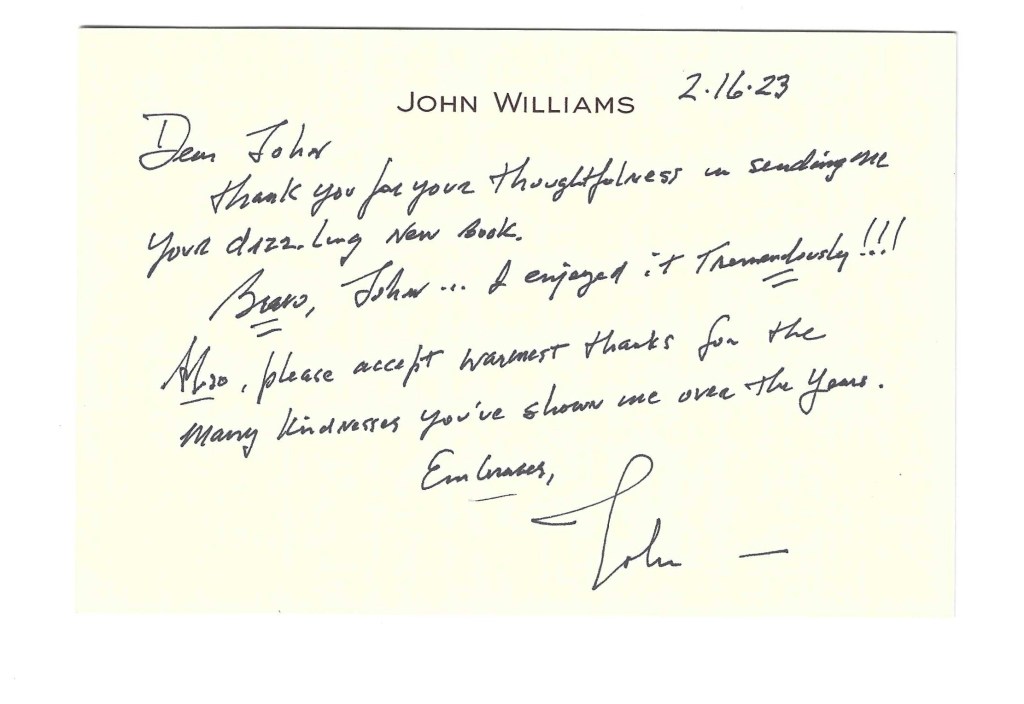 JOHN WILLIAMS 2.16.23
Dear John
Thank you for your thoughtfulness in sending me
your dazzling new book.
Bravo, John... I enjoyed it tremendously!!!
Also, please accept warmest thanks for the
many kindnesses you've shown me over the years.
Embraces,
John —